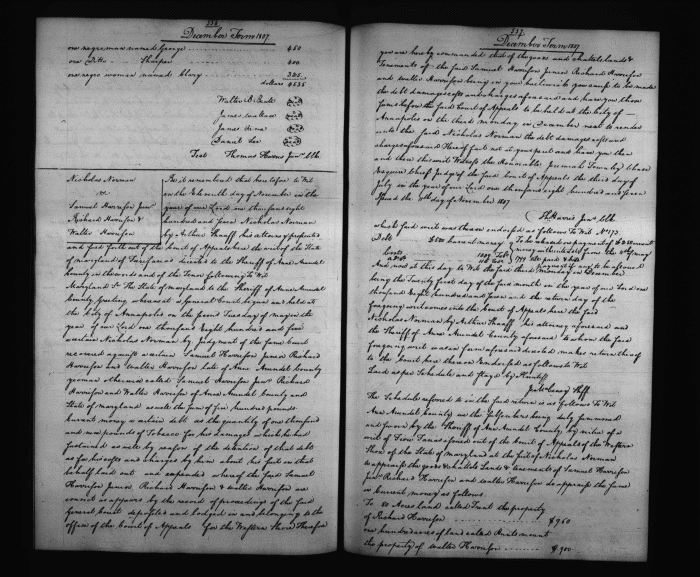 336
December Term 1807
one negro man named George 450
one Ditto Sharper 400
one negro woman named Clary 325
dollars
James Wallace
Daniel Lee
Test Thomas Harris Junr Clk
Nicholas Norman
vs
Samuel Harrison Junr
Richard Harrison &
Walter Harrison
Be it remembered that heretofore to Wit
on the Eleventh day of November in the
year of our Lord one thousand eight
hundred and seven Nicholas Norman
by Arthur Shaaff his attorney prosecuted
and sued forth out of the Court of Appeals here the writ of the State
of Maryland of Fierifacias directed to the Sheriff of Anne Arundel
County in the words and of the Tenor following to Wit
Maryland Sc The State of Maryland to the Sheriff of Anne Arundel
County Greeting whereas at a General Court begun and held at
the City of Annapolis on the second Tuesday of May in the
year of our Lord one thousand Eight hundred and five
a certain Nicholas Norman by Judgment of the same Court
recovered against a certain Samuel Harrison Junior Richard
Harrison and Walter Harrison late of Anne Arundel County
yeoman otherwise called Samuel Harrison Junr Richard
Harrison and Walter Harrison of Anne Arundel County and
State of Maryland as well the sum of five hundred pounds
current money a certain debt as the quantity of one thousand
and pounds of Tobacco for his damages which he had
sustained as well by reason of the detention of that debt
as for his costs and charges by him about his suit in that
behalf laid out and expended whereof the said Samuel
Harrison Junior Richard Harrison & Walter Harrison are
convict as appears by the record of proceedings of the said
General Court deposited and lodged in and belonging to the
office of the Court of Appeals for the Western Shore Therefore
337
December Term 1807
you are hereby commanded that of the goods and chattels lands &
Tenements of the said Samuel Harrison Junior Richard Harrison
and Walter Harrison being in your bailiwick you cause to be made
the debt damages costs and charges aforesaid and have you those
sums before the said Court of Appeals to be held at the City of
Annapolis on the third Monday in December next to render
unto the said Nicholas Norman the debt damages costs and
charges aforesaid Hereof fail not at your peril and have you then
and there this writ Witness the Honorable Jeremiah Townley Chase
Esquire Chief Judge of the said Court of Appeals the third day of
July in the year of our Lord one thousand eight hundred and seven
Issued the day of November 1807
Th Harris Junr Clk
which said writ was thus endorsed as follows To Wit No 173
Debt £500 current money
Costs
And now at this day To Wit the said third Monday in December
being the Twenty first day of the said month in the year of our Lord one
thousand Eight hundred and seven and the return day of the
foregoing writ comes into the Court of Appeals here the said
Nicholas Norman by Arthur Shaaff his attorney aforesaid and
the Sheriff of Anne Arundel County aforesaid to whom the said
foregoing writ was in form aforesaid directed makes return thereof
to the Court here thereon Endorsed as follows to Wit
Laid as per Schedule and stayd by Plaintiff
Shff
The Schedule referred to in the said return is as follows To Wit
Anne Arundel County We the Subscribers being duly summoned
and sworn by the Sheriff of Anne Arundel County by virtue of a
writ of Fieri Facias issued out of the Court of Appeals of the Western
Shore of the State of Maryland at the suit of Nicholas Norman
to appraise the goods & chattels Lands & tenements of Samuel Harrison
Junr Richard Harrison and Walter Harrison do appraise the same
in Current money as follows
To 80 Acres Land called Trent the property
of Richard Harrison $960
one hundred acres of land called
the property of Walter Harrison $900